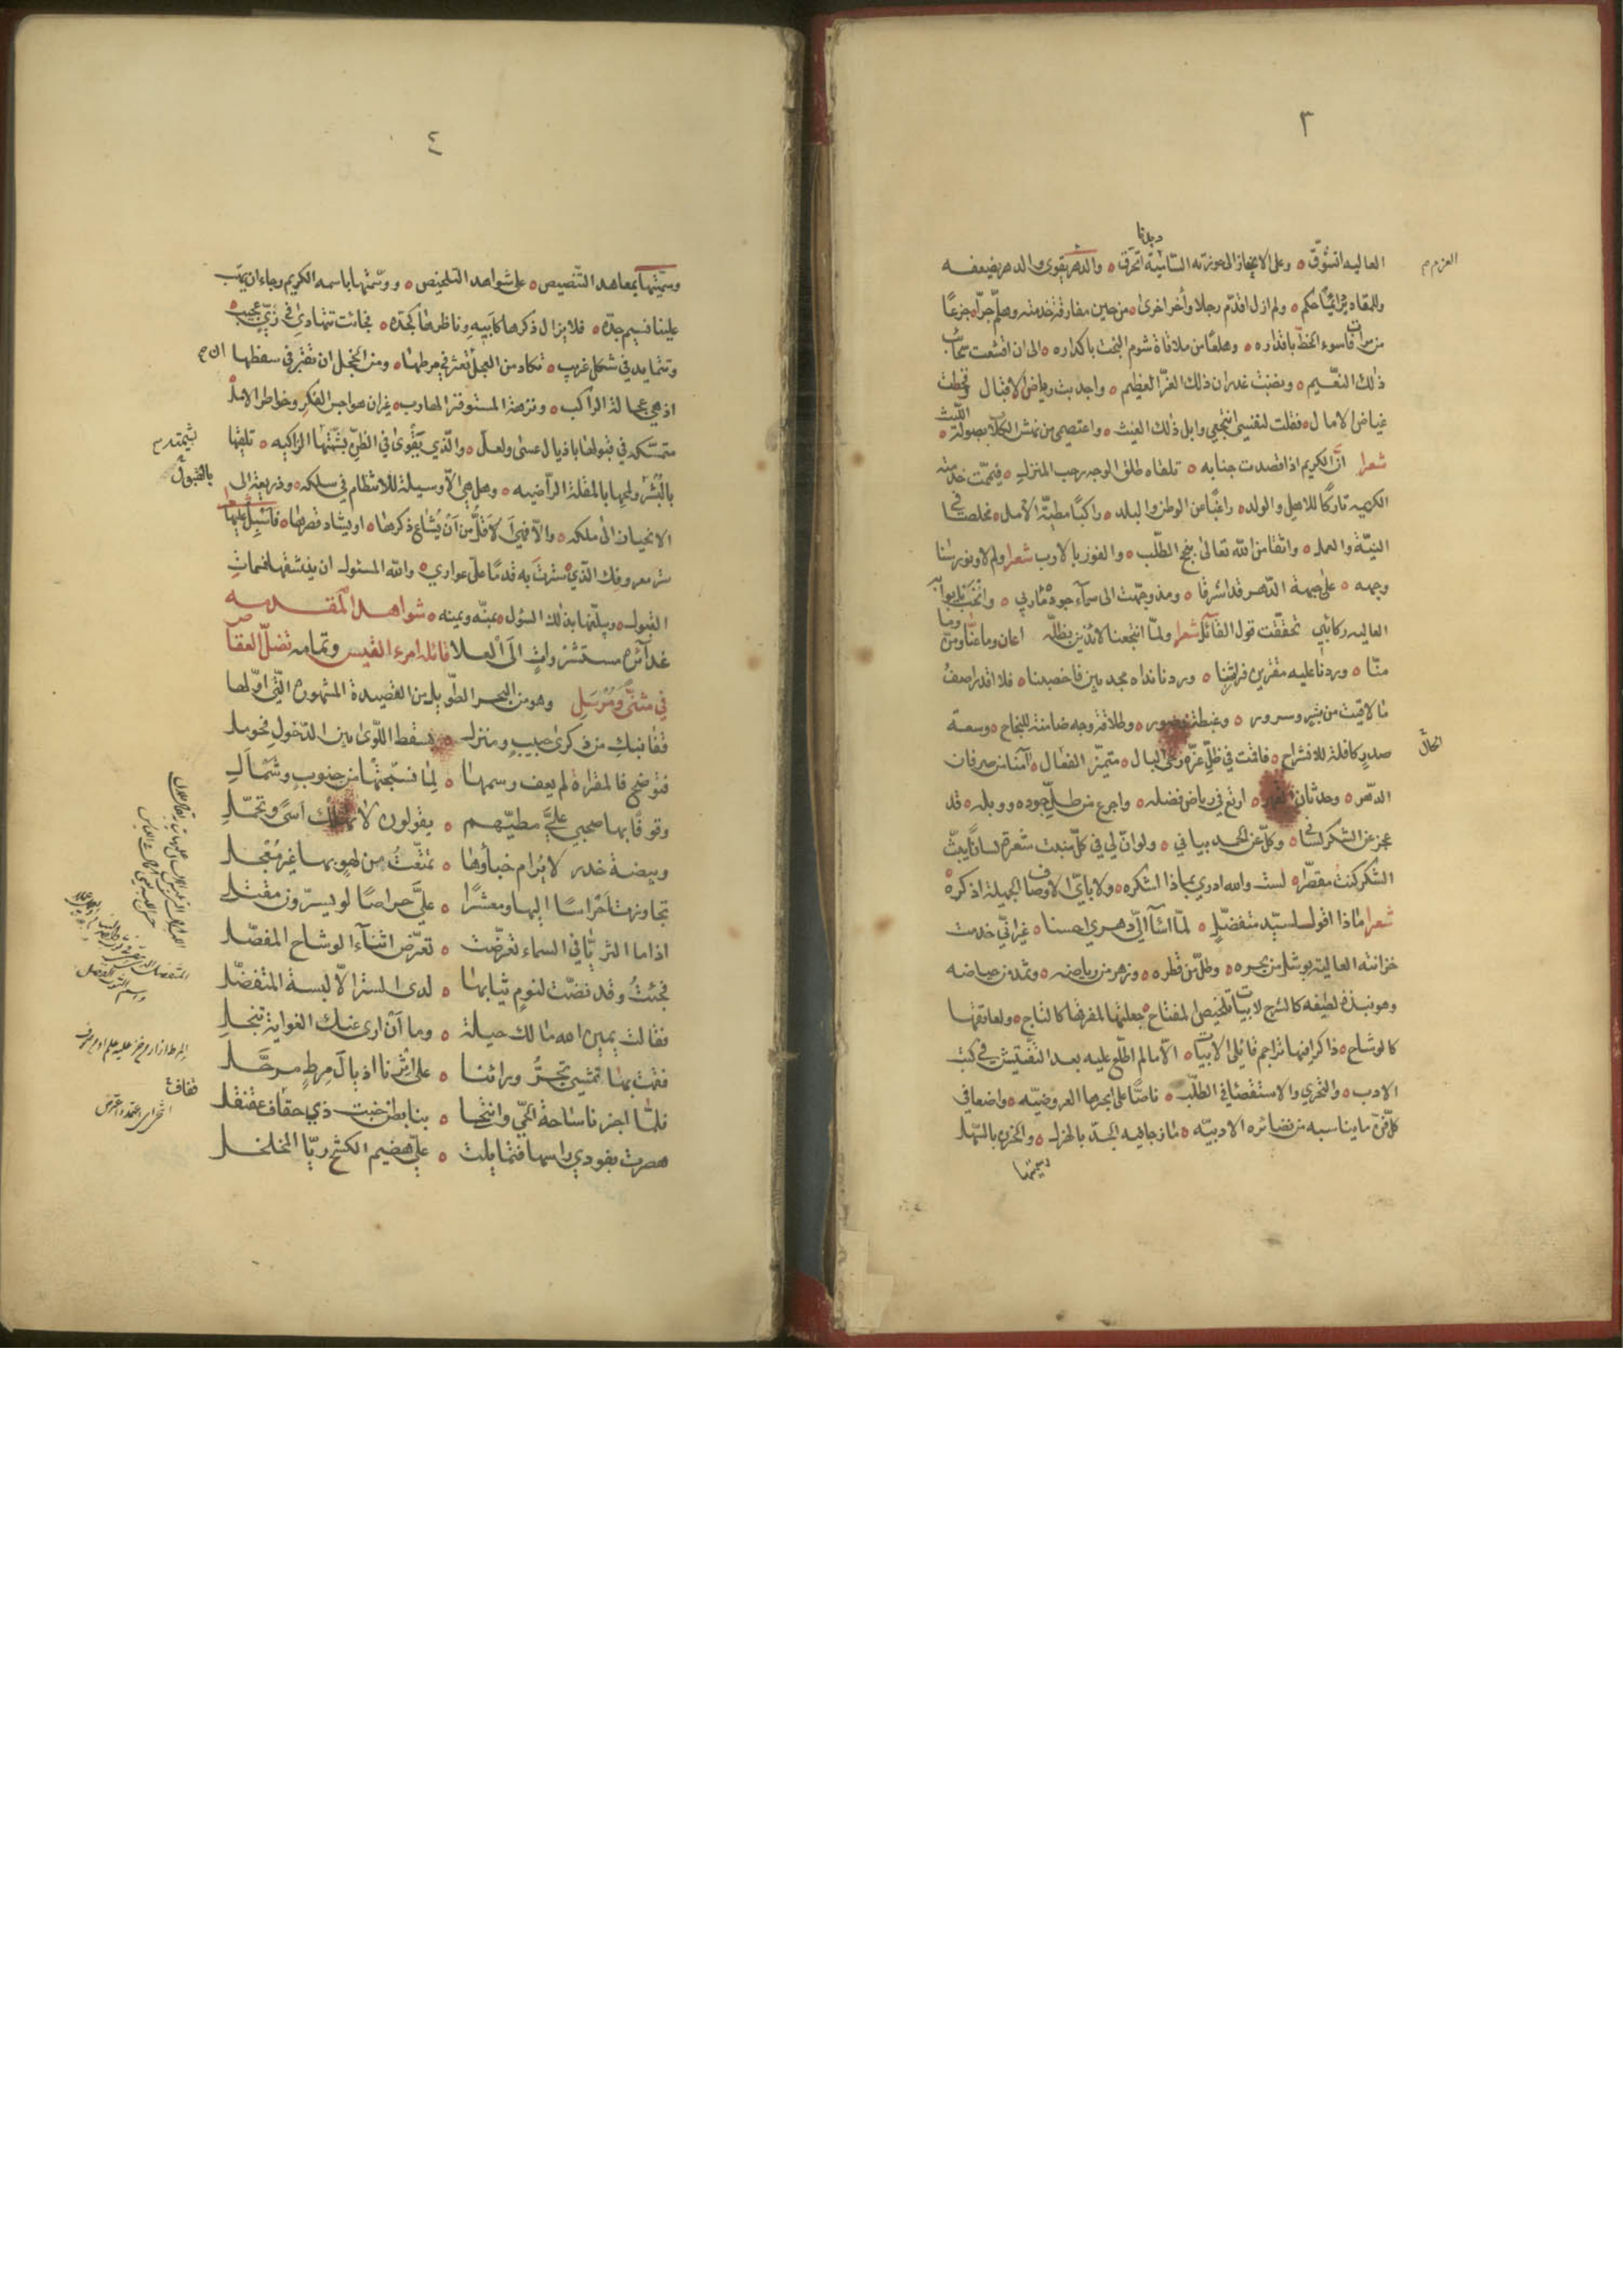 ٣
العاليه اتشوّق ٥ وعلى الانحياز الى حوزته السانية اتحرّق ٥ والدهر يقوى والدهر يضعفه
العزم م
وللمقادير أيضًا حكم ٥ ولم ازل اقدّم رجلا وأخر اخرى ٥ من حين مفارقة خدمته وهلمّ جرًّا ٥ جزعًا
من مراقاة سوء الحظ باقذاره ٥ وهلعًا من ملاقاة شوم البخت باكداره ٥ الى ان اقشعت سحائب
ذلك النعيم ٥ ونضبت غدران ذلك العزّ العظيم ٥ واجدبت رياض الاقبال وقحطت
غياض الامال ٥ فقلت لنفسي انتجعي وابل ذلك الغيث ٥ واعتصمي من نهش الكلاب بصولة الليث ٥
شعرا انّ الكريم اذا قصدت جنابه ٥ تلقاه طلق الوجه رحب المنزل ٥ فيمّمت خدمته
الكريمه تاركًا للاهل والولد ٥ راغبًا عن الوطن والبلد ٥ راكبًا مطيّة الامل ٥ مخلصًا في
النيّة والعمل ٥ واثقا من الله تعالى بنجح المطلب ٥ والفوز بالارب شعرا ولم لا ونور سنا
وجهه ٥ على جبهة الدهر قد اشرقا ٥ ومذ وجّهت الى سمآء جوده مآربي ٥ وانخت بابوابه
العاليه ركائبي تحققت قول القائل شعرا ولمّا انتجعنا لائذين بظلّه اعان وما عنّا ومنّ وما
منّا ٥ وردنا عليه مقترين فراشنا ٥ وردنا نداه مجدبين فاخصبنا ٥ فلا اقدر اصف
ما لاقيت من بشر وسرور ٥ وغبطة وحبور ٥ وطلاقة وجه ضامنة للنجاح ٥ وسعة
صدر كافلة للانشراح ٥ فاقمت في ظلّ عزّه رخيّ البال ٥ متميّز الفعال ٥ آمنا من صرفان
الحال
الدهر ٥ وحدثان القهر ٥ ارتع في رياض فضله ٥ واجرع من طلّ جوده ووبله ٥ قد
عجز عن الشكر لساني ٥ وكلّ عن الحمد بياني ٥ ولو انّ لي في كلّ منبت شعرة لسانًا يبثّ
الشكر كنت مقصّرا ٥ لست والله ادري بماذا اشكره ٥ ولا بايّ الاوصاف الجميلة اذكره ٥
شعرا ماذا اقول لسيّد متفضّل ٥ لمّا اسآ اليّ دهري احسنا ٥ غير انّي خدمت
خزانته العالية بوشل من بحره ٥ وطلّ من قطره ٥ وزهر من رياضه ٥ وثمد من حياضه
وهو نبذة لطيفه كالشرح لابيات تلخيص المفتاح ٥ جعلتها لمفرقها كالتاج ٥ ولعاتقها
كالوشاح ٥ ذاكرا فيها تراجم قائلي الابيات ٥ الا ما لم اطّلع عليه بعد التفتيش في كتب
الادب ٥ والتحري والاستقصاء في الطلب ٥ ناصًّا على ابحرها العروضيّه ٥ واضعا في
كلّ فنّ ما يناسبه من نضائره الادبيّه ٥ مازجا فيه الجدّ بالهزل ٥ والحزن بالسهل
وسميتها
٤
وسمّيتها بمعاهد التنصيص ٥ على شواهد التلخيص ٥ ووسّمتها باسمه الكريم رجاء ان يهبّ
علينا نسيم جدّه ٥ فلا يزال ذكرها كابيه وناظرها كجدّه ٥ فجائت تتهادى في زيّ عجيب ٥
وتتمايد في شكل غريب ٥ تكاد من العجل تعثر في مرطها ٥ ومن الخجل ان تقبر في سفطها
اذ هي عجالة الراكب ٥ ونزهة المستوفز الهارب ٥ غير ان هواجس الفكر وخواطر الامل
متمسّكه في قبولها باذيال عسى ولعلّ ٥ والّذي يقوى في الظنّ بشيمتها الزاكيه ٥ تلقيها
بالقبول
بالبشر ولمحها بالمقلة الراضيه ٥ وهل هي الّا وسيلة للانتظام في سلكه ٥ وذريعة الى
الانحياز الى ملكه ٥ والّا فهي لاقلّ من ان يشاع ذكرها ٥ او يشاد قصرها ٥ فاسبل عليها
ستر معروفك الّذي ٥ سترت به قدمًا على عواري ٥ والله المسئول ان ينشقها نسمات
القبول ٥ ويبلّغها بذلك السؤل ٥ بمنّه ويمنه ٥ شواهد المقدمه
غدآئره مستشزرات الى العلا قائله امرء القيس وتمامه تضلّ العقاص
في مثنّى ومرسل وهو من البحر الطويل من القصيدة المشهوره الّتي اوّلها
قفا نبك من ذكرى حبيب ومنزل ٥ بسقط اللّوى بين الدّخول فحومل
فتوضح فالمقراة لم يعف رسمها ٥ لما نسجتها من جنوب وشمأل
وقوفًا بها صحبي عليّ مطيّهم ٥ يقولون لا تهلك اسًى وتجمّل
وبيضة خدر لا يرام خباؤها ٥ تمتّعت من لهو بها غير معجل
تجاوزت احراسًا اليها ومعشرًا ٥ عليّ حراصًا لو يسرّون مقتلي
اذا ما الثريّا في السماء تعرّضت ٥ تعرّض اثناء الوشاح المفصّل
فجئت وقد نضّت لنوم ثيابها ٥ لدى الستر الّا لبسة المتفضّل
فقالت يمين الله مالك حيلة ٥ وما ان ارى عنك الغواية تنجلي
فقمت بها تمشي تجرّ ورائنا ٥ على اثرنا اذيال مرط مرحّل
فلمّا اجزنا ساحة الحيّ وانتحا ٥ بنا بطن خبت ذي حقاف عقنقل
هصرت بفودي راسها فتمايلت ٥ عليّ هضيم الكشح ريّا المخلخل